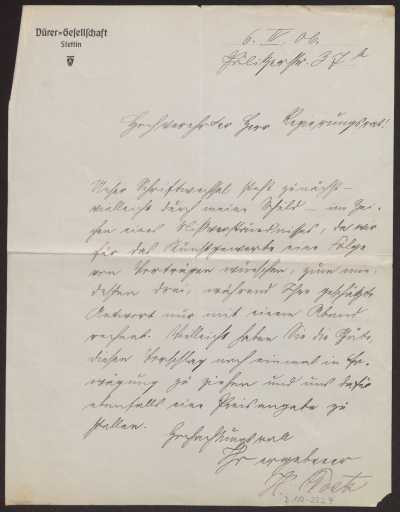 Dürer-Gesellschaft
Stettin
6. IV. 06.
Pölitzerstr. 37
Hochverehrter Herr Regierungsrat!
Unser Schriftwechsel steht zunächst –
vielleicht durch meine Schuld – im Zei-
chen eines Missverständnisses, da wir
für das Kunstgewerbe eine Folge
von Vorträgen wünschen, zum min-
desten drei, während Ihre geschätzte
Antwort nur mit einem Abend
rechnet. Vielleicht haben Sie die Güte,
diesen Vorschlag noch einmal in Er-
wägung zu ziehen und uns dafür
ebenfalls eine Preisangabe zu
stellen.
Hochachtungsvoll
Ihr ergebener